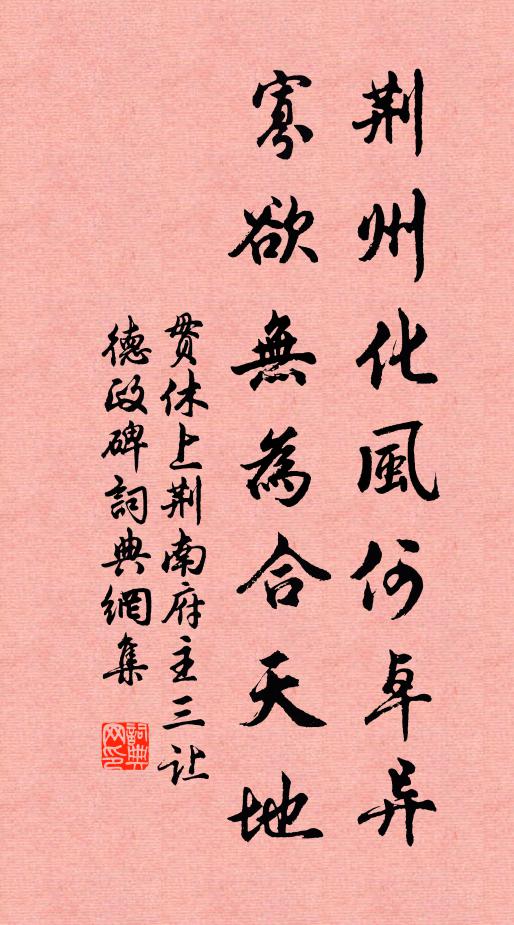 荆州化風何卓异
寡欲無為合天地
贯休上荆南府主三让
德政碑詞典網集
詞典网印